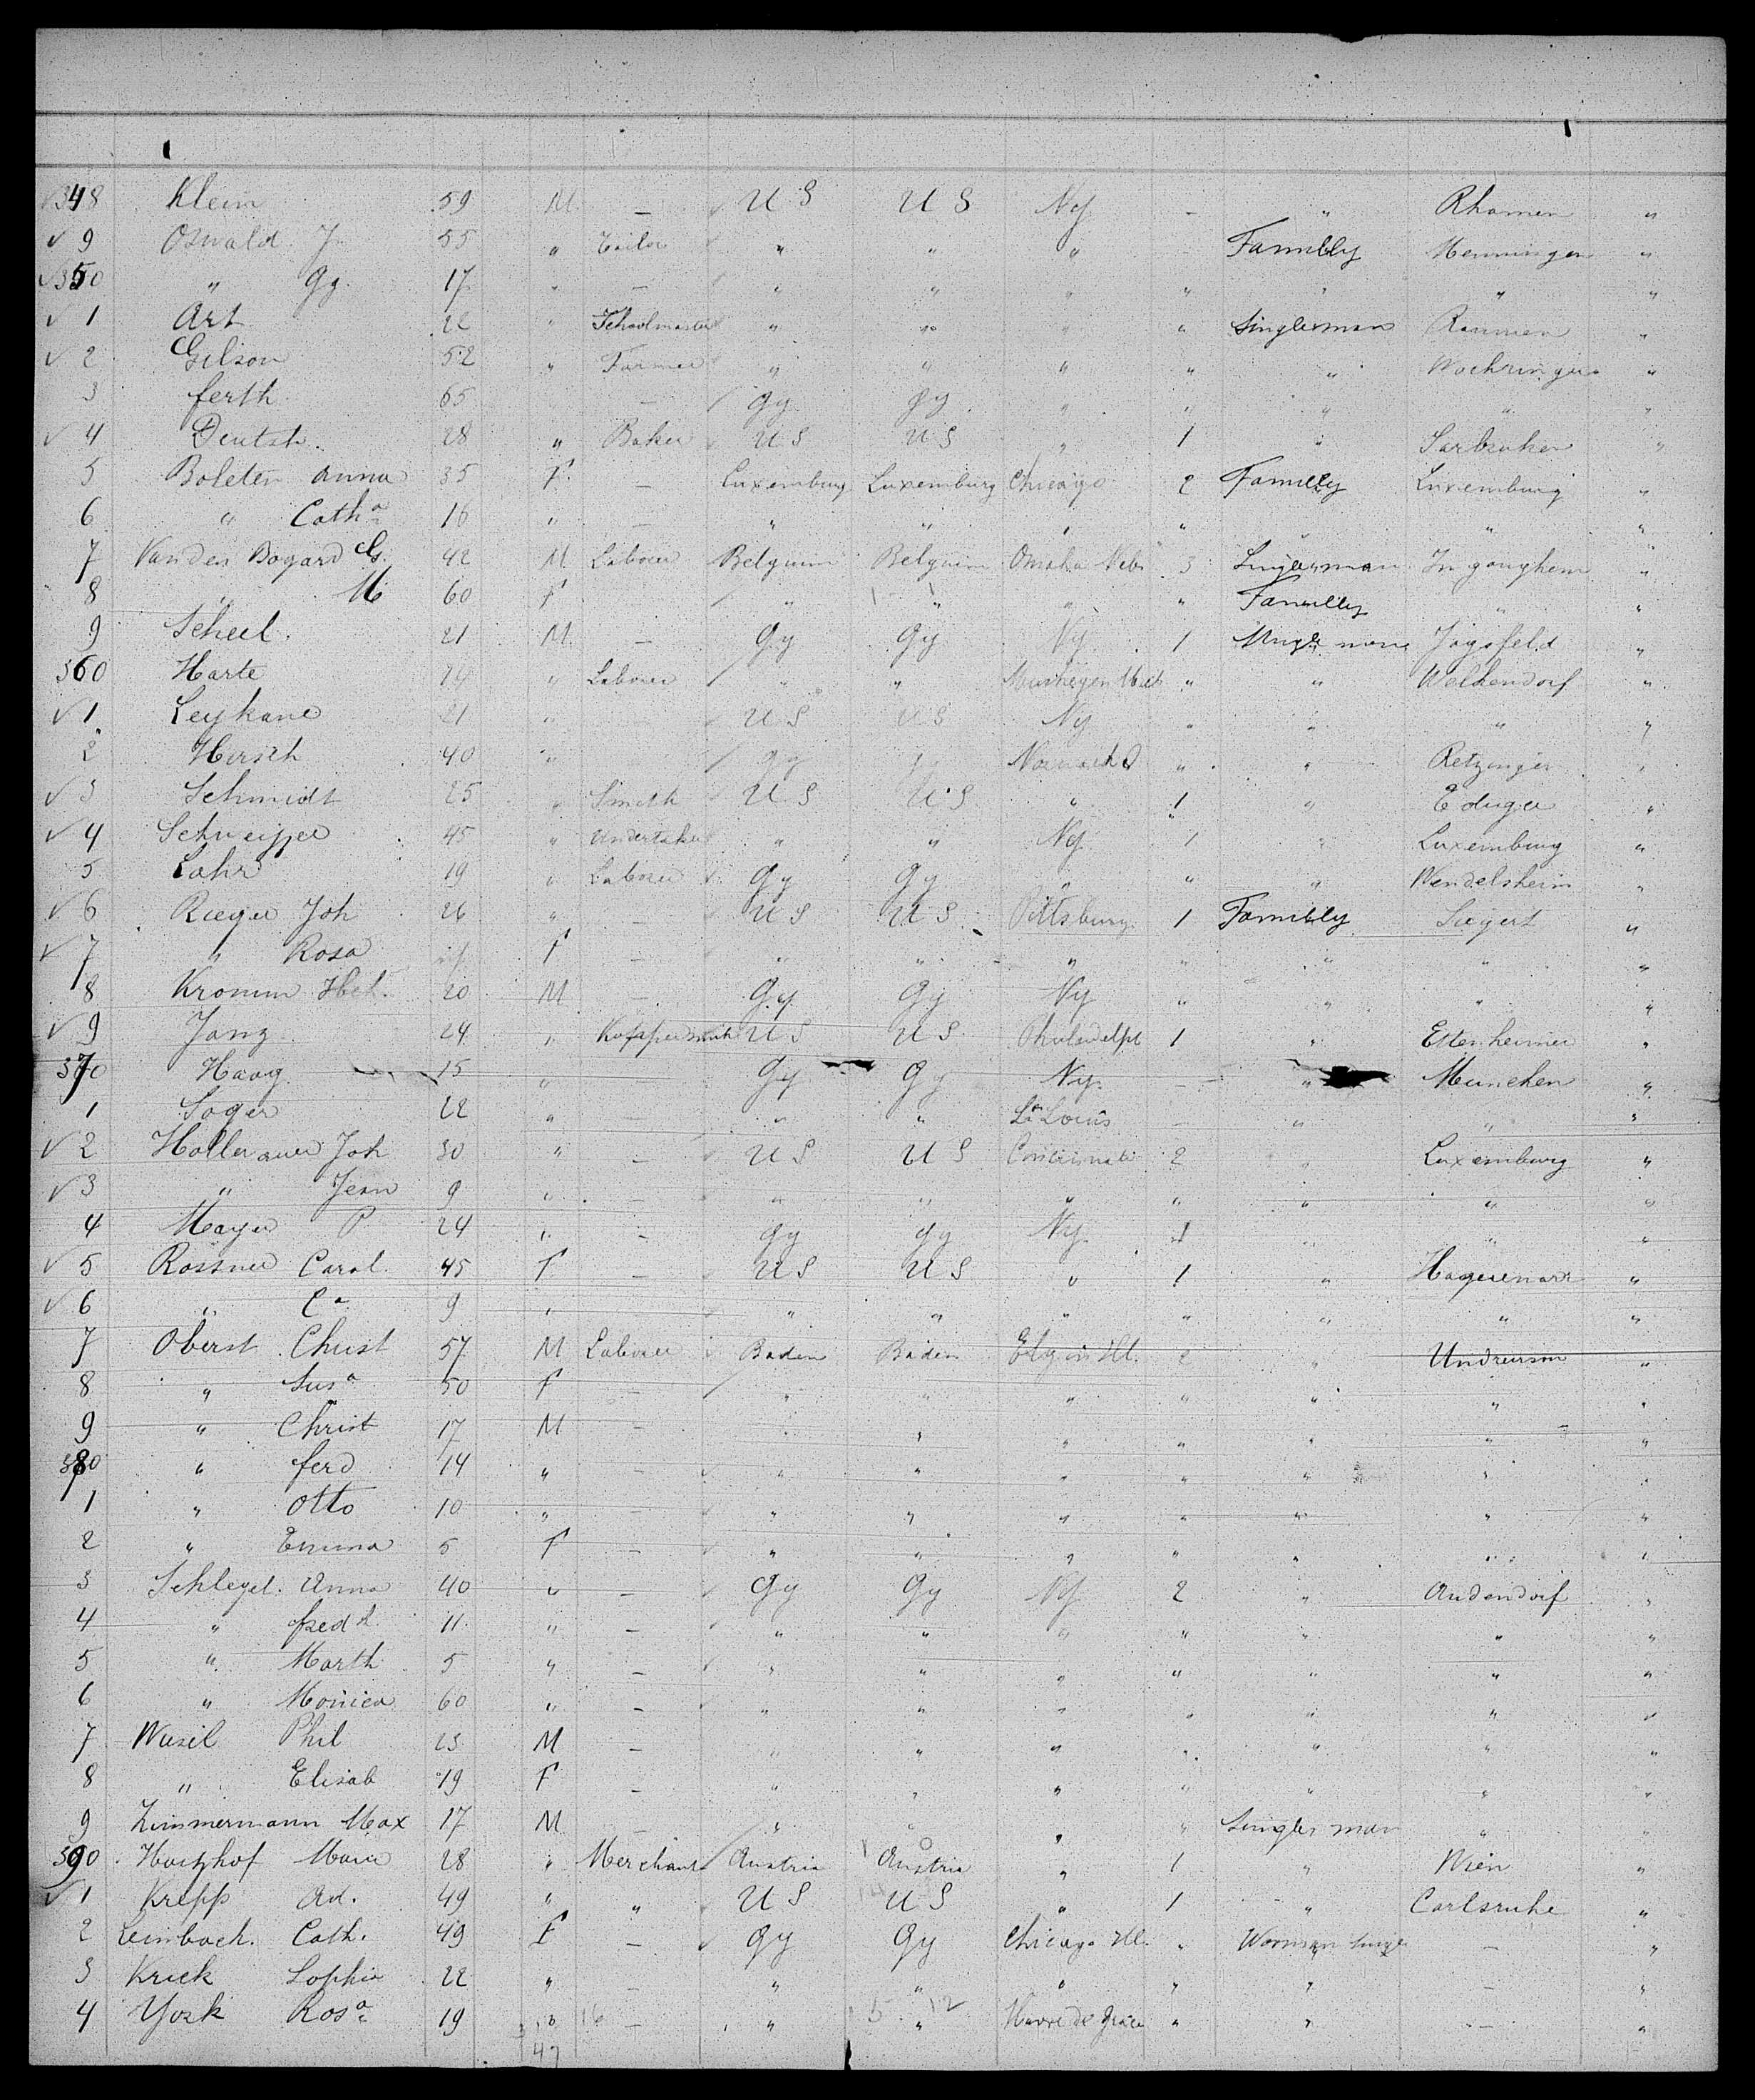 348 Klein 59 M — U S U S Ny - " Rhamen "
9 Oswald J 55 " Tailor " " " - Familly Menningen "
350 " Gg 17 " — " " " " " " "
1 Art 22 " Schoolmaster " " " " Singlesman Raumen "
2 Gilson 52 " Farmer " " " " " "
3 ferth 65 — gy gy " " " " "
4 Deutsh. 28 " Baker U S U S " 1 " Sarbruken "
5 Boleten Anna 35 F — Luxemburg Luxemburg Chicago 2 Familly Luxemburg "
6 " Catha 16 " — " " " " " " "
7 Vanden Bogard G. 42 M Laborer Belguim Belguim Omaha Neb 3 Singlesman Ingoughem "
8 " M 60 F " " " " Familly " "
9 Scheel. 21 M — Gy Gy Ny 1 Single man Jagsfeld "
360 Harte 14 " Laborer " " " " Welkendorf "
1 Leykane 21 " U S U S Ny " " " "
2 Hirsch 40 " gy " " " "
3 Schmidt 25 " Smith U S U S " 1 " "
4 45 " Undertaker " " Ny 1 " Luxemburg "
5 Lahr 19 " Laborer Gy Gy " " " Wendelsheim "
6 Rieger Joh 26 " — U S U S Pittsburg 1 Familly Siegert "
7 " Rosa F — " " " " " " "
8 Kromm 20 M — Gy Gy Ny " " " "
9 Janz 24 " U S U S Philadelph 1 " Ettenheimer "
370 Haag 15 " Gy Gy Ny. — " Munchen "
1 Soger 22 " " " St Louis — " " "
2 Hollerauer Joh 30 " — U S U S Concinnati 2 " Luxemburg "
3 " Jean 9 " — " " " " " " "
4 Mayer P 24 " - gy gy Ny 1 " " "
5 Rossner Carol. 45 F — U S U S " 1 " "
6 " Ca 9 " " " " " " " "
7 Oberst Christ 57 M Laborer Baden Baden Elgin Ill. 2 " "
8 " Susa 50 F — " " " " " " "
9 " Christ 17 M — " " " " " " "
380 " ferd 14 " — " " " " " " "
1 " Otto 10 " — " " " " " " "
2 " Emma 5 F — " " " " " " "
3 Schlegel. Anna 40 " — Gy Gy Ny 2 " Audendorf "
4 " fredk 11. " — " " " " " " "
5 " Marth 5 " — " " " " " " "
6 " Monica 60 " — " " " " " " "
7 Wasil Phil 23 M — " " " " " " "
8 " Elisab 19 F — " " " " " " "
9 Zimmermann Max 17 M — " " " " Singles man " "
390 28 " Merchant Austria Austria " 1 " Wien "
1 Krepp Ad. 49 " " U S U S " 1 " Carlsruhe "
2 Leimbach. Cath. 49 F — Gy Gy Chicago Ill. " Womman single — "
3 Krick Sophie 22 " — " " " " " — "
4 York Rosa 19 " 16 — " 5 12 " Havre de Grace " " — "
47